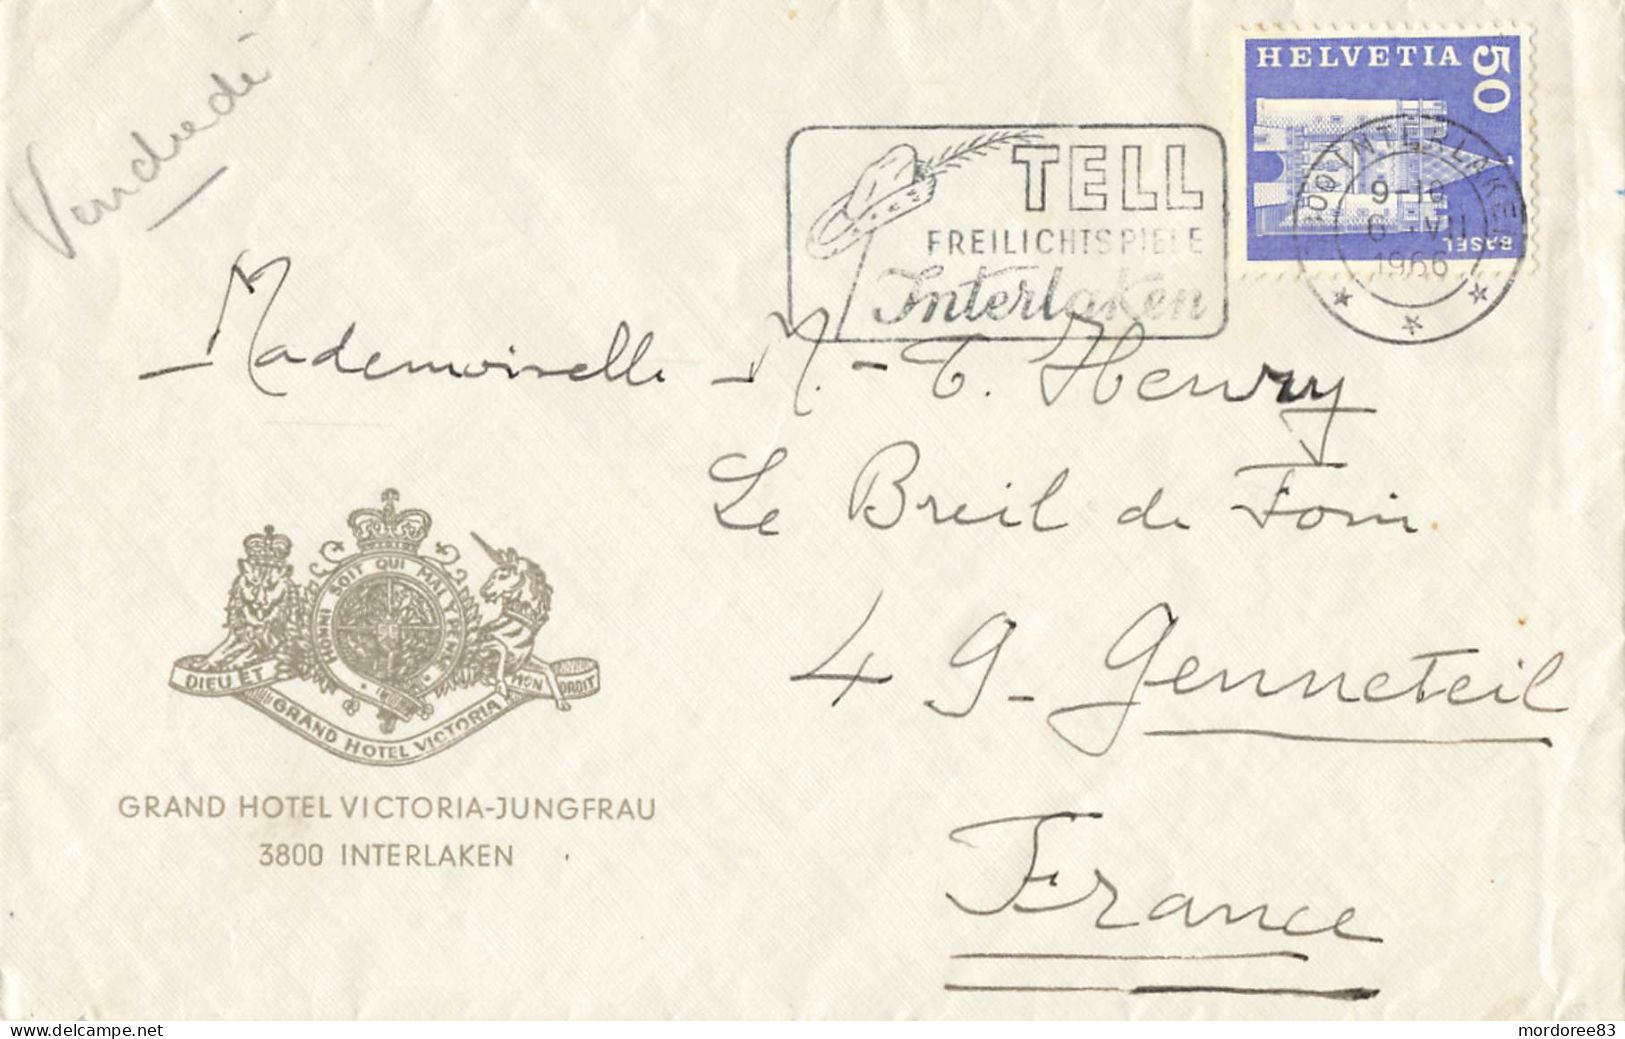 Vendredi
HELVETIA 50
BASEL
TELL
FREILICHTSPIELE
Interlaken
INTERLAKEN
9-10
6.-VII
1966
Mademoiselle M.-T. Henry
Le Breil de Foin
49-Genneteil
France
HONNI SOIT QUI MAL Y PENSE
DIEU ET MON DROIT
GRAND HOTEL VICTORIA
GRAND HOTEL VICTORIA-JUNGFRAU
3800 INTERLAKEN
mordoree83